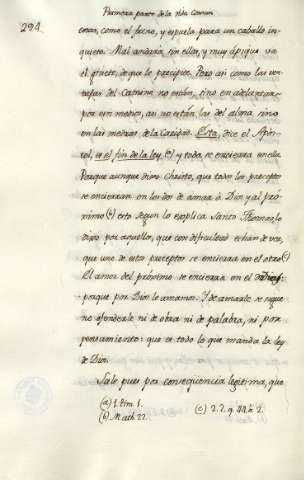 Primera parte de la vida comun
294.
cosas, como el freno, y espuela para un caballo in-
quieto. Mal andaria sin ellas, y muy á pique va
el ginete, de que le precipite. Pero asi como las ven-
tajas del camino no están, sino en adelantar
por sus medios, asi no están las del alma, sino
en las medras de la Caridad. Esta, dice el Após-
tol, es el fin de la ley, (a) y toda se encierra en ella.
Porque aunque dixo Christo, que todos los preceptos
se encierran en los dos de amar á Dios y al pró-
ximo (b) esto segun lo explica Santo Thomas, lo
dixo por aquellos, que con dificultad echan de ver,
que uno de estos preceptos se encierra en el otro (c)
El amor del próximo se encierra en el de Dios,
porque por Dios le amamos. Y de amarle se sigue
no ofenderle ni de obra ni de palabra, ni por
pensamiento: que es todo lo que manda la ley
de Dios.
Sale pues por consequencia legitima, que
(a) 1. Tim. 1.
(b) Math. 22.
(c) 2. 2. q. 44. a. 2.